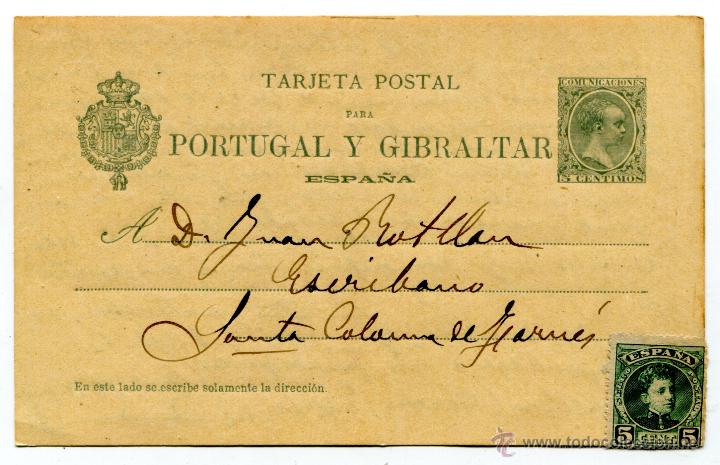 TARJETA POSTAL
PARA
PORTUGAL Y GIBRALTAR
ESPAÑA
COMUNICACIONES
5 CENTIMOS
A D. Juan Rotllan
Escribano
Santa Coloma de Farnés
En este lado se escribe solamente la dirección.
ESPAÑA
5 CENT. 5
www.todocoleccion.net